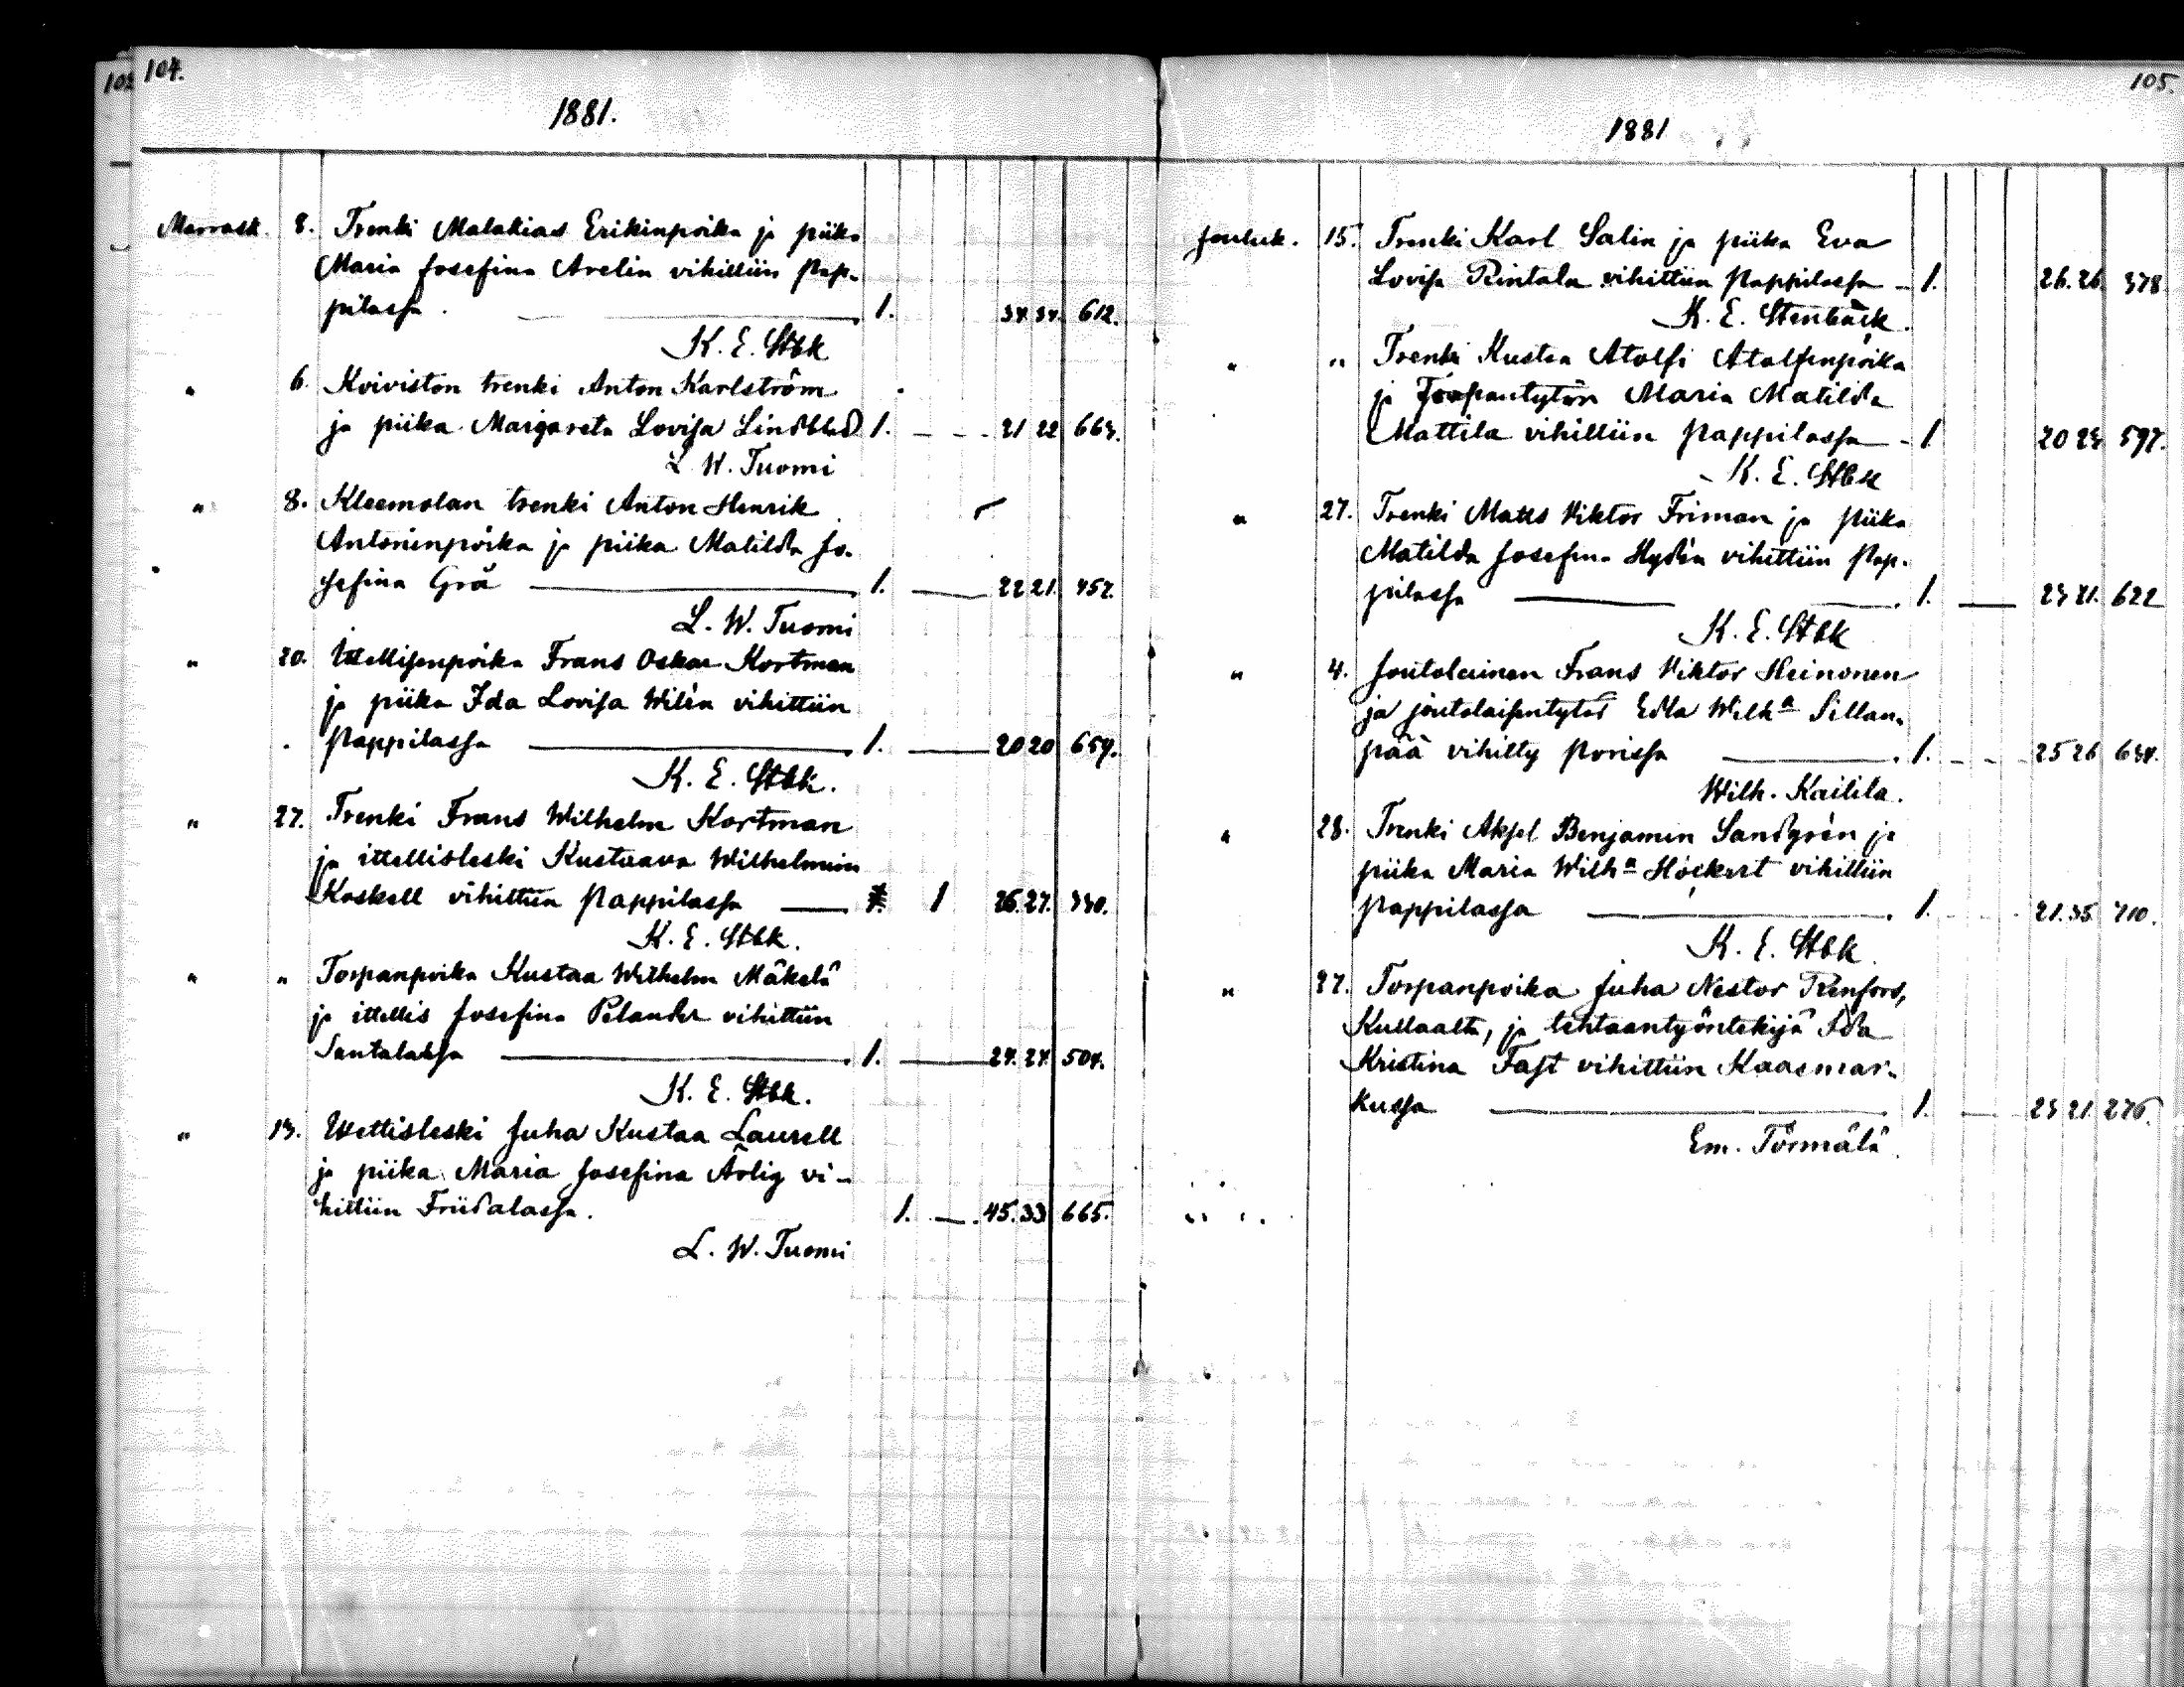 104.
1881.
Marrask. 8. Trenki Malakias Erikinpoika ja piika
Maria Josefina Avelin vihittiin Pap-
pilassa. 1. 34. 34. 612.
K. E. Stbk
" 6. Koiviston trenki Anton Karlström
ja piika Margareta Lovisa Lindblad 1. 21 22 663.
L. W. Tuomi
" 8. Kleemolan trenki Anton Henrik
Antoninpoika ja piika Matilda Jo-
sefina Grå 1. 22 21. 457.
L. W. Tuomi
" 20. Ittellisenpoika Frans Oskar Kortman
ja piika Ida Lovisa Wilén vihittiin
Pappilassa 1. 20 20 659.
K. E. Stbk.
" 27. Trenki Frans Wilhelm Kortman
ja ittellisleski Kustaava Wilhelmiin
Koskell vihittiin Pappilassa 1 26. 27. 330.
K. E. Stbk.
" " Torpanpoika Kustaa Wilhelm Mäkelä
ja ittellis Josefina Pelander vihittiin
Santalassa 1. 24. 24. 504.
K. E. Stbk.
" 13. Ittellisleski Juha Kustaa Laurell
ja piika Maria Josefina Ärlig vi-
hittiin Friidalassa. 1. 45. 33 665.
L. W. Tuomi
105.
1881
Jouluk. 15. Trenki Karl Salin ja piika Eva
Lovisa Rintala vihittiin Pappilassa 1. 26. 26. 378
K. E. Stenbäck.
" " Trenki Kustaa Atolfi Atolfinpoika
ja Torpantytön Maria Matilda
Mattila vihittiin Pappilassa 1 20 23 597.
K. E. Stbk
" 27. Trenki Matts Viktor Friman ja piika
Matilda Josefina Hydén vihittiin Pap-
pilassa 1. 23 21. 622
K. E. Stbk
" 4. Joutolainen Frans Viktor Heinonen
ja joutolaisentytär Edla Wilhª Sillan-
pää vihitty Porissa 1. 25 26 634.
Wilh. Kailila.
" 28. Trenki Aksel Benjamin Sandgrén ja
piika Maria Wilhª Höckert vihittiin
Pappilassa 1. 21. 35. 710.
K. E. Stbk.
" 27. Torpanpoika Juha Nestor Renfors,
Kullaalta, ja tehtaantyöntekijä Ida
Kristina Fast vihittiin Kaasmar-
kussa 1. 23 21. 276.
Em. Törmälä.